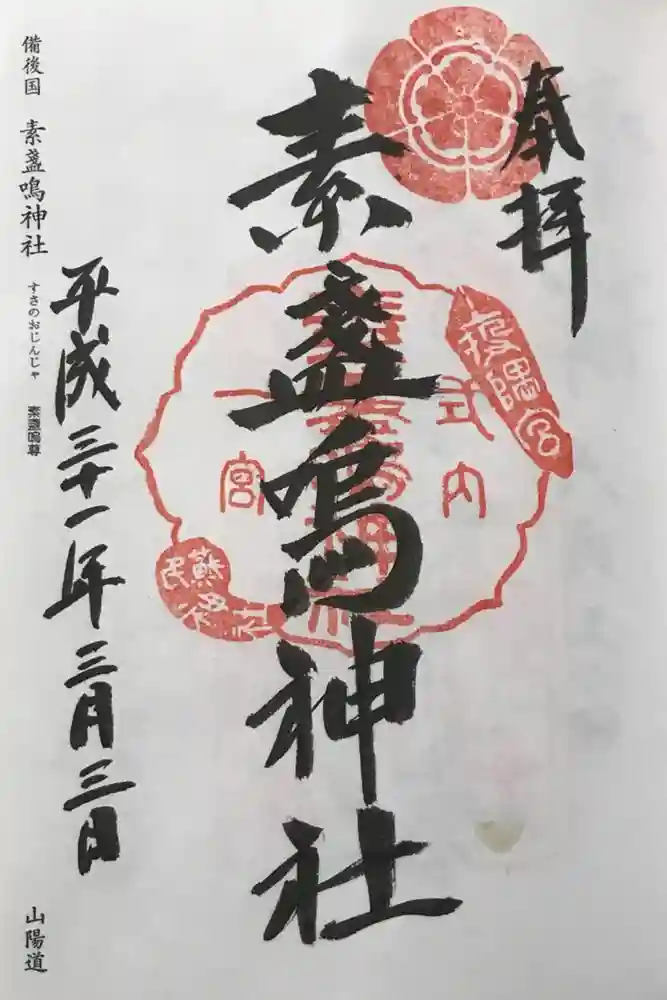 奉拝
素盞嗚神社
式内
一宮
疫隅
蘇民
平成三十一年三月三日
備後国 素盞嗚神社
すさのおじんじゃ 素盞嗚尊
山陽道